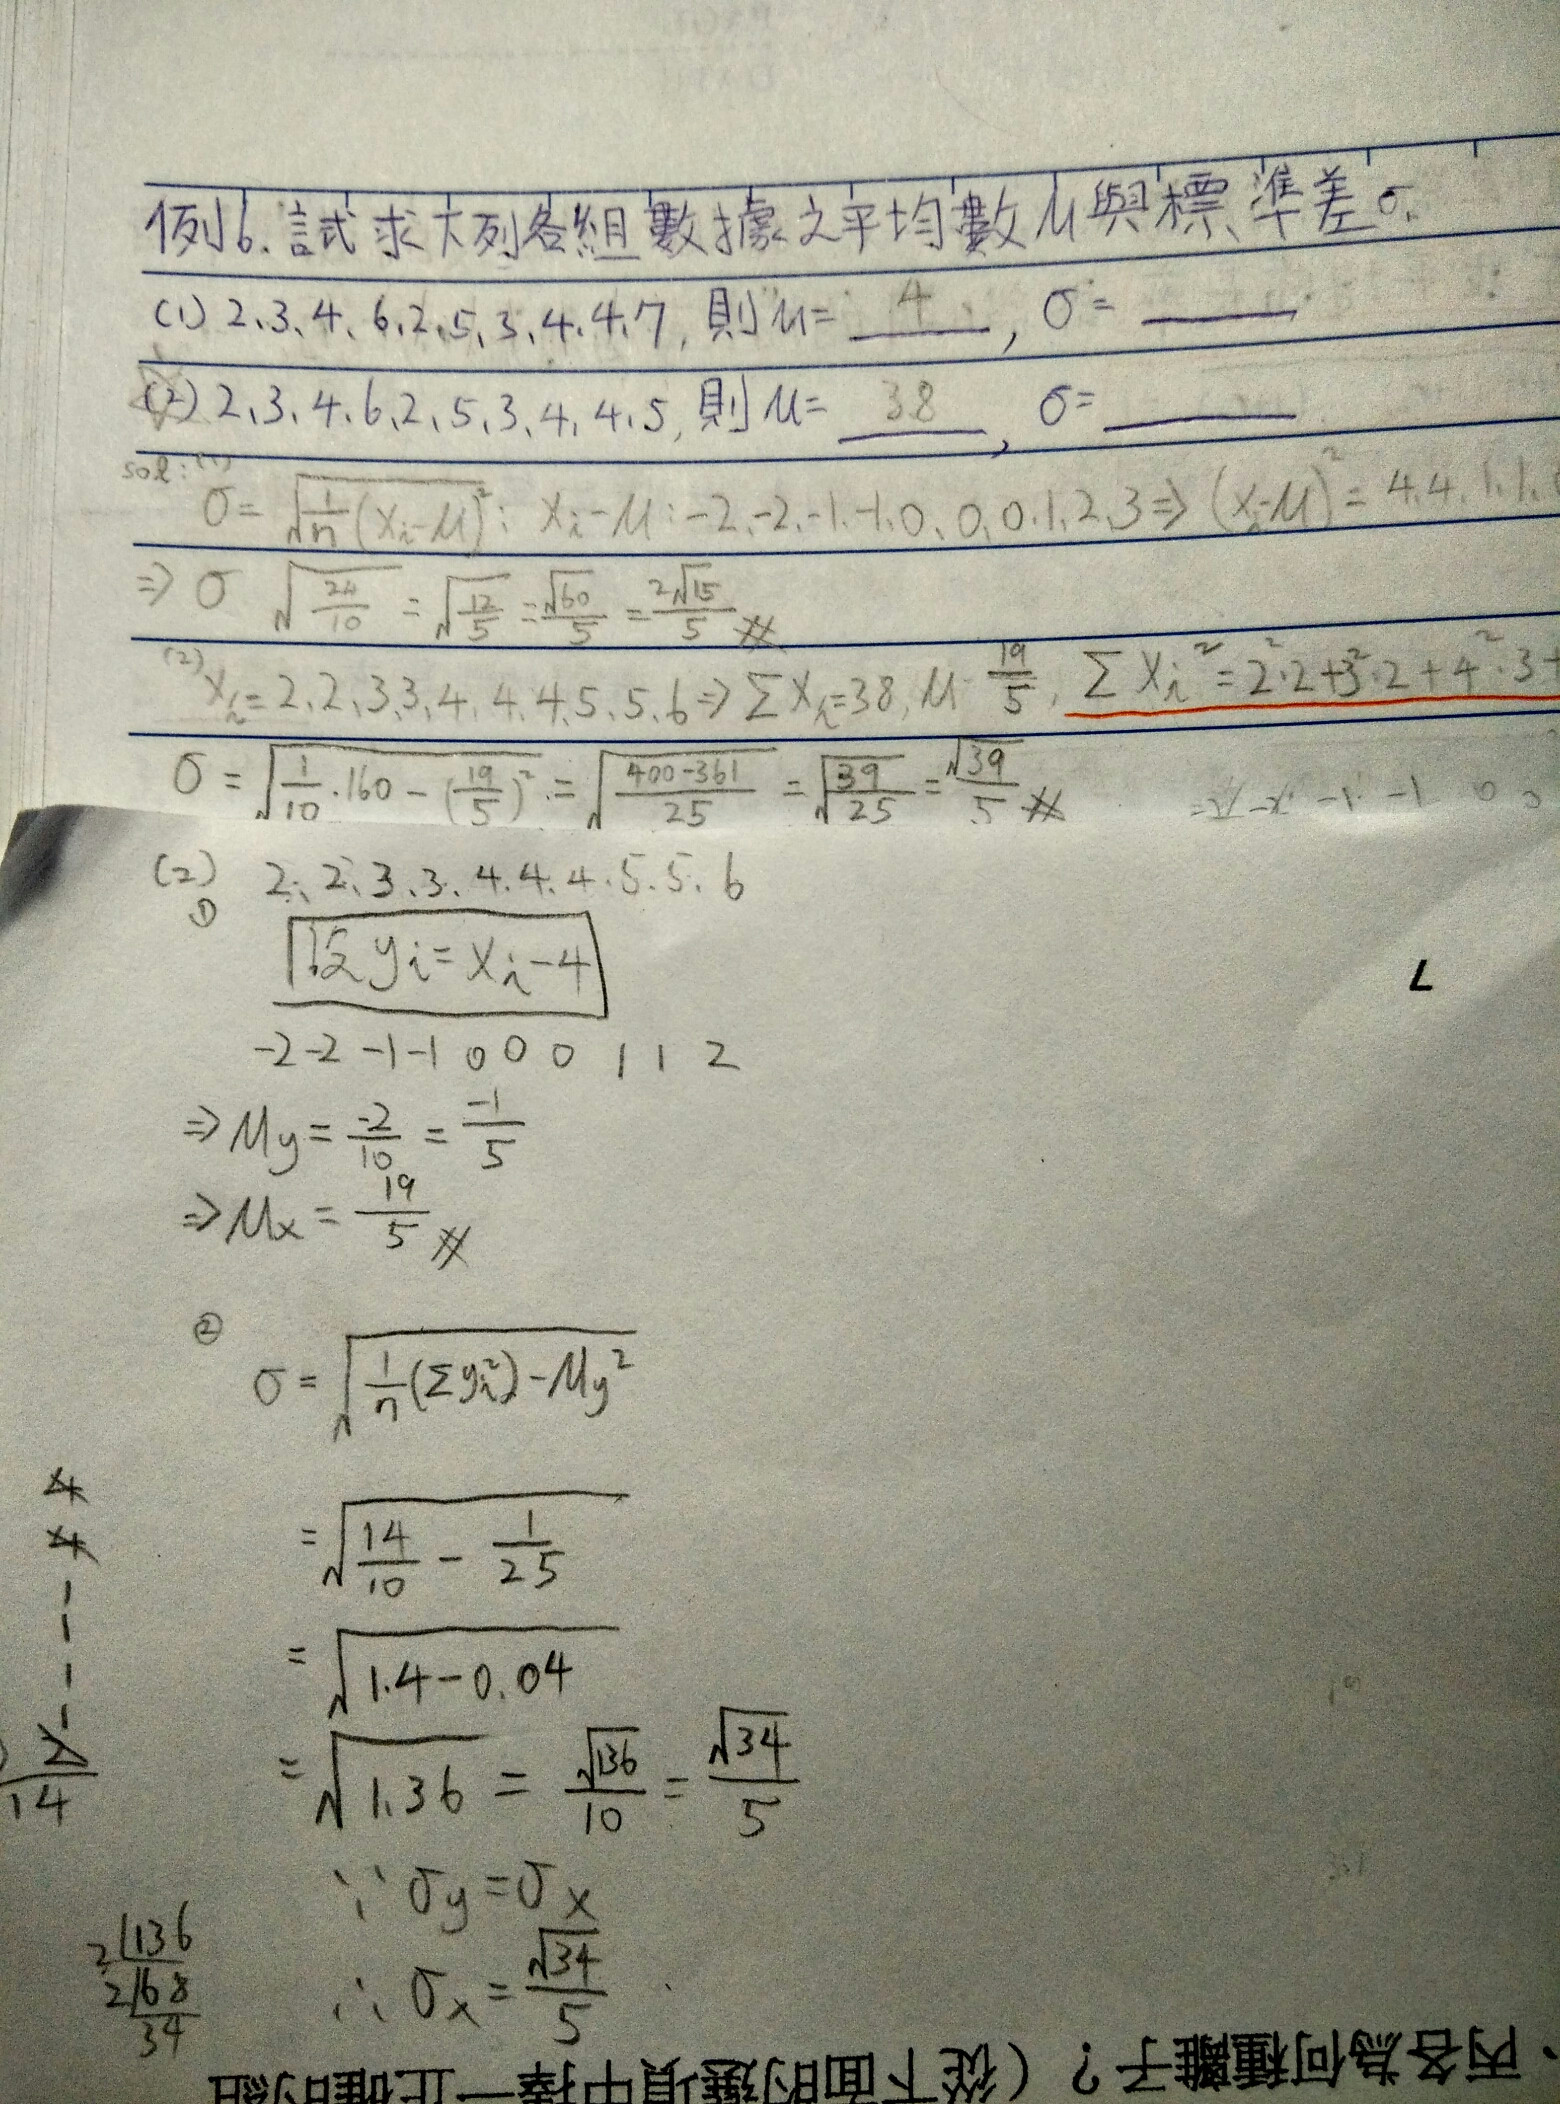 例6. 試求下列各組數據之平均數μ與標準差σ.
(1) 2、3、4、6、2、5、3、4、4、7, 則μ= 4 , σ=
(2) 2、3、4、6、2、5、3、4、4、5, 則μ= 3.8 , σ=
sol: (1)
σ= √(1/n (xᵢ-μ)²): xᵢ-μ: -2、-2、-1、-1、0、0、0、1、2、3 ⇒ (xᵢ-μ)² = 4、4、1、1、
⇒ σ √(24/10) = √(12/5) = √60/5 = 2√15/5
(2) xᵢ = 2、2、3、3、4、4、4、5、5、6 ⇒ Σxᵢ=38, μ 19/5, Σxᵢ² = 2²·2+3²·2+4²·3+
σ = √(1/10·160-(19/5)²) = √((400-361)/25) = √(39/25) = √39/5
(2) 2、2、3、3、4、4、4、5、5、6
①
設 yᵢ= xᵢ-4
-2 -2 -1 -1 0 0 0 1 1 2
⇒ μy = -2/10 = -1/5
⇒ μx = 19/5
②
σ = √(1/n(Σyᵢ²)-μy²)
= √(14/10 - 1/25)
= √(1.4-0.04)
= √1.36 = √136/10 = √34/5
∵ σy = σx
∴ σx = √34/5
4
4
1
1
1
1
14
2|136
2|68
34
、丙各為何種離子？（從下面的選項中擇一正確的組